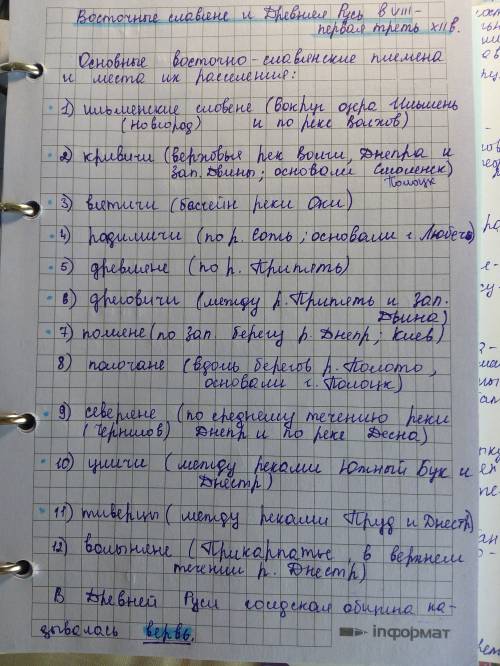 Восточные славяне и Древняя Русь в VIII-
первая треть XII в.
Основные восточно-славянские племена
и места их расселения:
1) ильменские словене (вокруг озера Ильмень
(Новгород) и по реке Волхов)
2) кривичи (верховья рек Волги, Днепра и
Зап. Двины; основали Смоленск)
Полоцк
3) вятичи (бассейн реки Оки)
4) радимичи (по р. Соть; основали г. Любечь)
5) древляне (по р. Припять)
6) дреговичи (между р. Припять и Зап.
Двина)
7) поляне (по зап. берегу р. Днепр; Киев)
8) полочане (вдоль берегов р. Полото,
основали г. Полоцк)
9) северяне (по среднему течению реки
(Чернигов) Днепр и по реке Десна)
10) уличи (между реками Южный Бук и
Днестр)
11) тиверцы (между реками Пруд и Днестр)
12) волыняне (Прикарпатье, в верхнем
течении р. Днестр)
В Древней Руси соседская община на-
зывалась вервь.
інформат